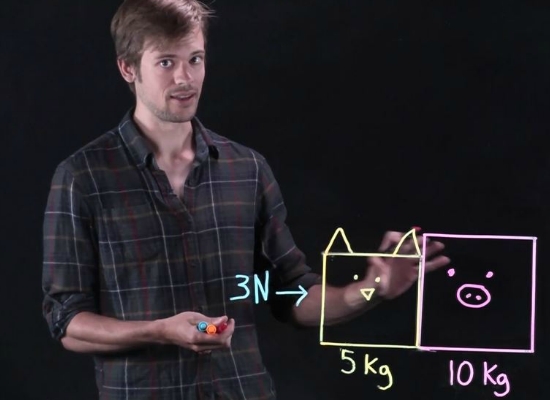 3N →
5 Kg
10 Kg